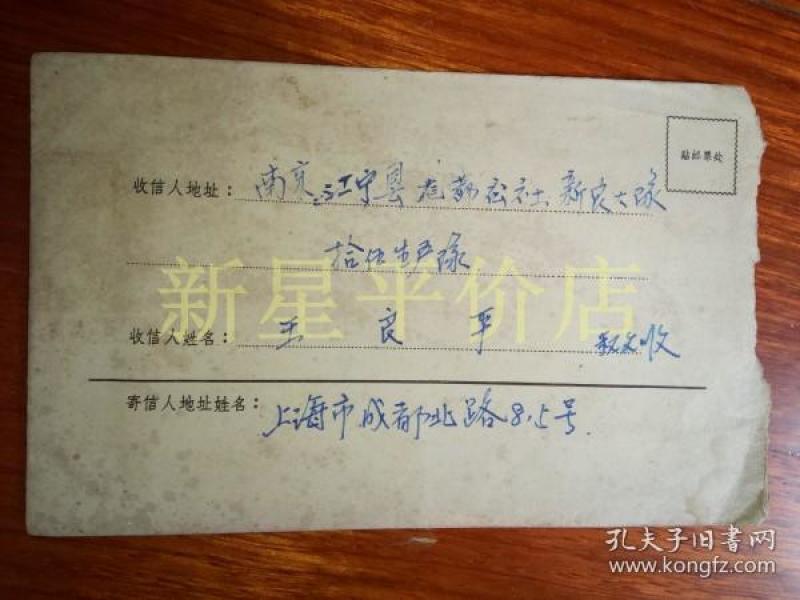 贴邮票处
收信人地址：南京江宁县龙都公社新良大队
拾伍生产队
新星平价店
收信人姓名：王良平 收
寄信人地址姓名：上海市成都北路815号
孔夫子旧书网
www.kongfz.com